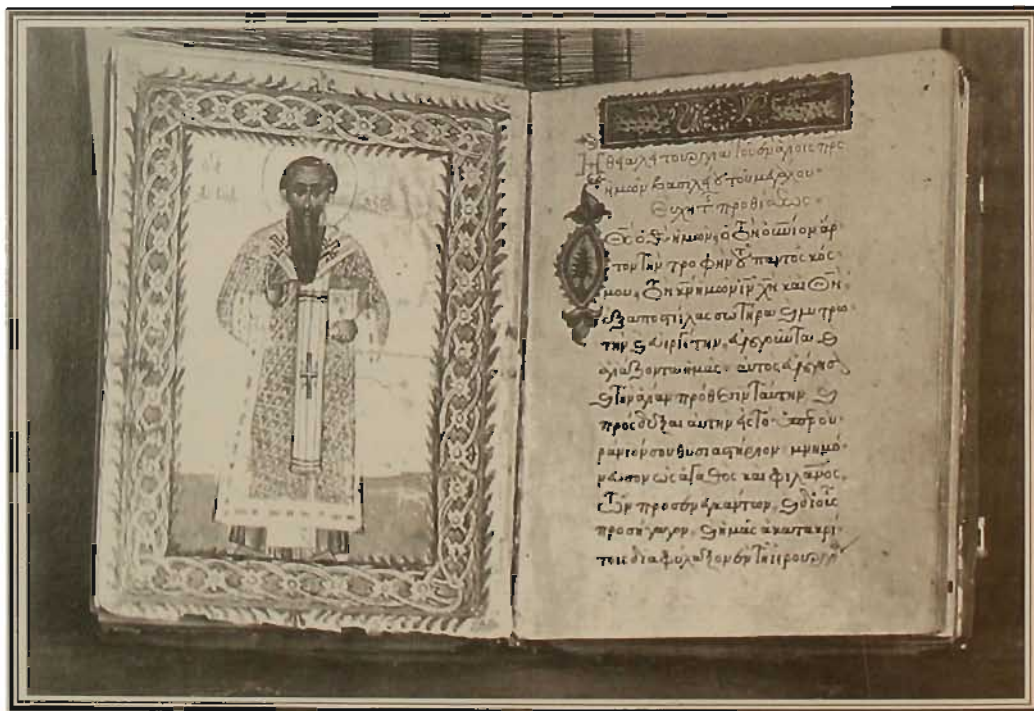 Ἡ θεία λειτουργία τοῦ ἐν ἁγίοις πρς
ἡμῶν Βασιλείου τοῦ μεγάλου·
Εὐχὴ τῆς προθέσεως·
Ὁ Θς ὁ Θς ἡμῶν, ὁ τὸν οὐνιον ἄρ
τον τὴν τροφὴν τοῦ παντὸς κόσ
μου, τὸν κν ἡμῶν ιν χν καὶ θν
ἐξαποστείλας σωτῆρα καὶ λυτρω
τὴν καὶ εὐεργέτην, εὐλογοῦντα καὶ
ἁγιάζοντα ἡμᾶς· αὐτὸς εὐλόγησον
καὶ τὴν ἁγίαν πρόθεσιν ταύτην καὶ
πρόσδεξαι αὐτὴν εἰς τὸ ὑπερου
ράνιόν σου θυσιαστήριον· μνημό
νευσον ὡς ἀγαθὸς καὶ φιλανος,
τῶν προσενεγκάντων, καὶ δι' οὓς
προσήγαγον, καὶ ἡμᾶς ἀκατακρί
τους διαφύλαξον ἐν τῇ ἱερουργίᾳ